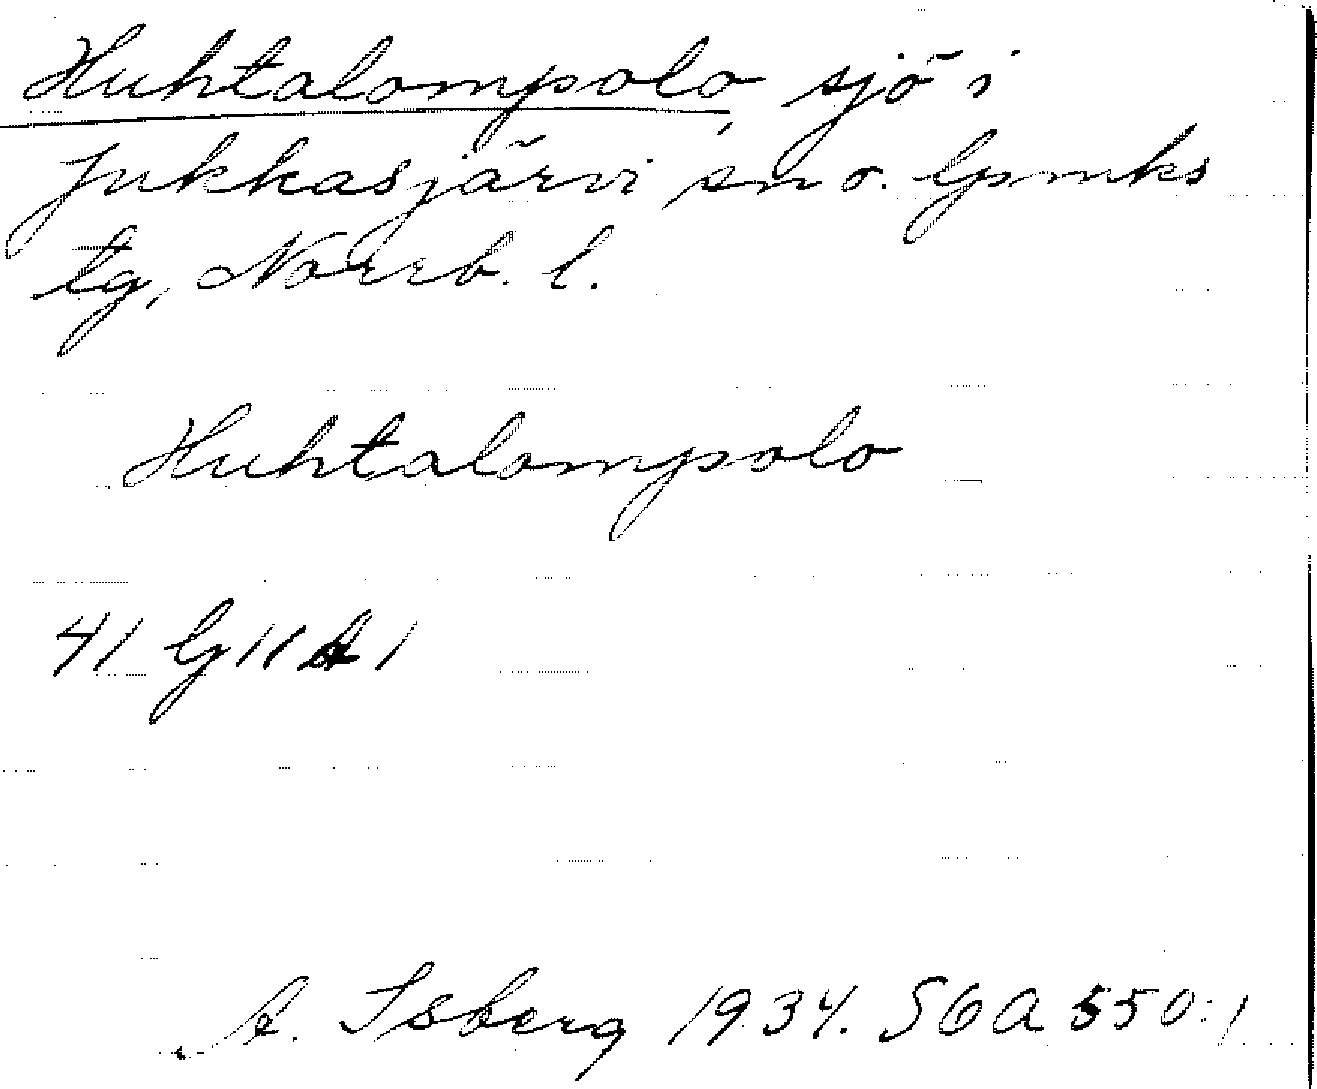 Huhtalompolo sjö i
Jukkasjärvi sn o. lpmks
tg, Norrb. l.
Huhtalompolo
41 G 11 A 1
A. Isberg 1934. SGA 550:1